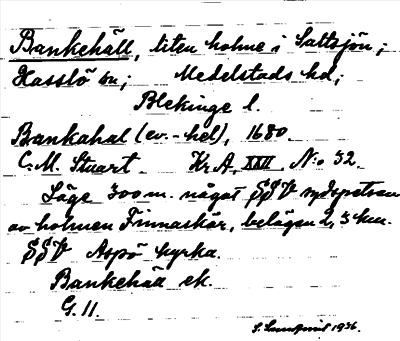 Bankehäll, liten holme i Saltsjön;
Hasslö sn; Medelstads hd;
Blekinge l.
Bankahal (ev. -hel), 1680.
C. M. Stuart. Kr A, XXII, N:o 32.
Läge 300 m. något SSV sydspetsen
av holmen Finnaskär, belägen 2,3 km.
SSV Aspö kyrka.
Bankehäll ek.
G. 11.
S. Lundqvist 1936.